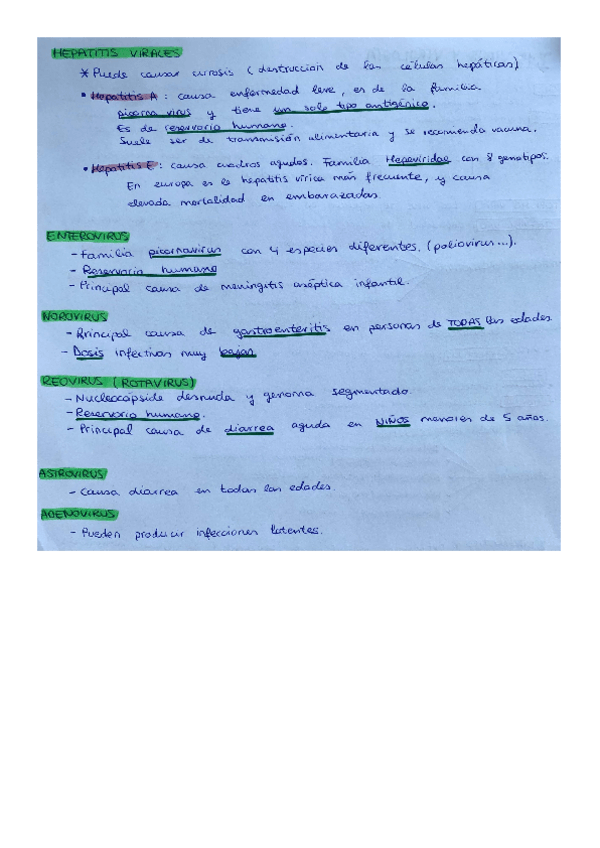 HEPATITIS VIRALES
* Puede causar cirrosis (destrucción de las células hepáticas)
• Hepatitis A: causa enfermedad leve, es de la familia
picorna virus y tiene un solo tipo antigénico.
Es de reservorio humano.
Suele ser de transmisión alimentaria y se recomienda vacuna.
• Hepatitis E: causa cuadros agudos. Familia Hepeviridae con 8 genotipos.
En europa es la hepatitis vírica más frecuente, y causa
elevada mortalidad en embarazadas.
ENTEROVIRUS
- Familia picornavirus con 4 especies diferentes. (poliovirus...).
- Reservorio humano
- Principal causa de meningitis aséptica infantil.
NOROVIRUS
- Principal causa de gastroenteritis en personas de TODAS las edades
- Dosis infectivas muy bajas
REOVIRUS (ROTAVIRUS)
- Nucleocápside desnuda y genoma segmentado.
- Reservorio humano.
- Principal causa de diarrea aguda en NIÑOS menores de 5 años.
ASTROVIRUS
- Causa diarrea en todas las edades.
ADENOVIRUS
- Pueden producir infecciones latentes.